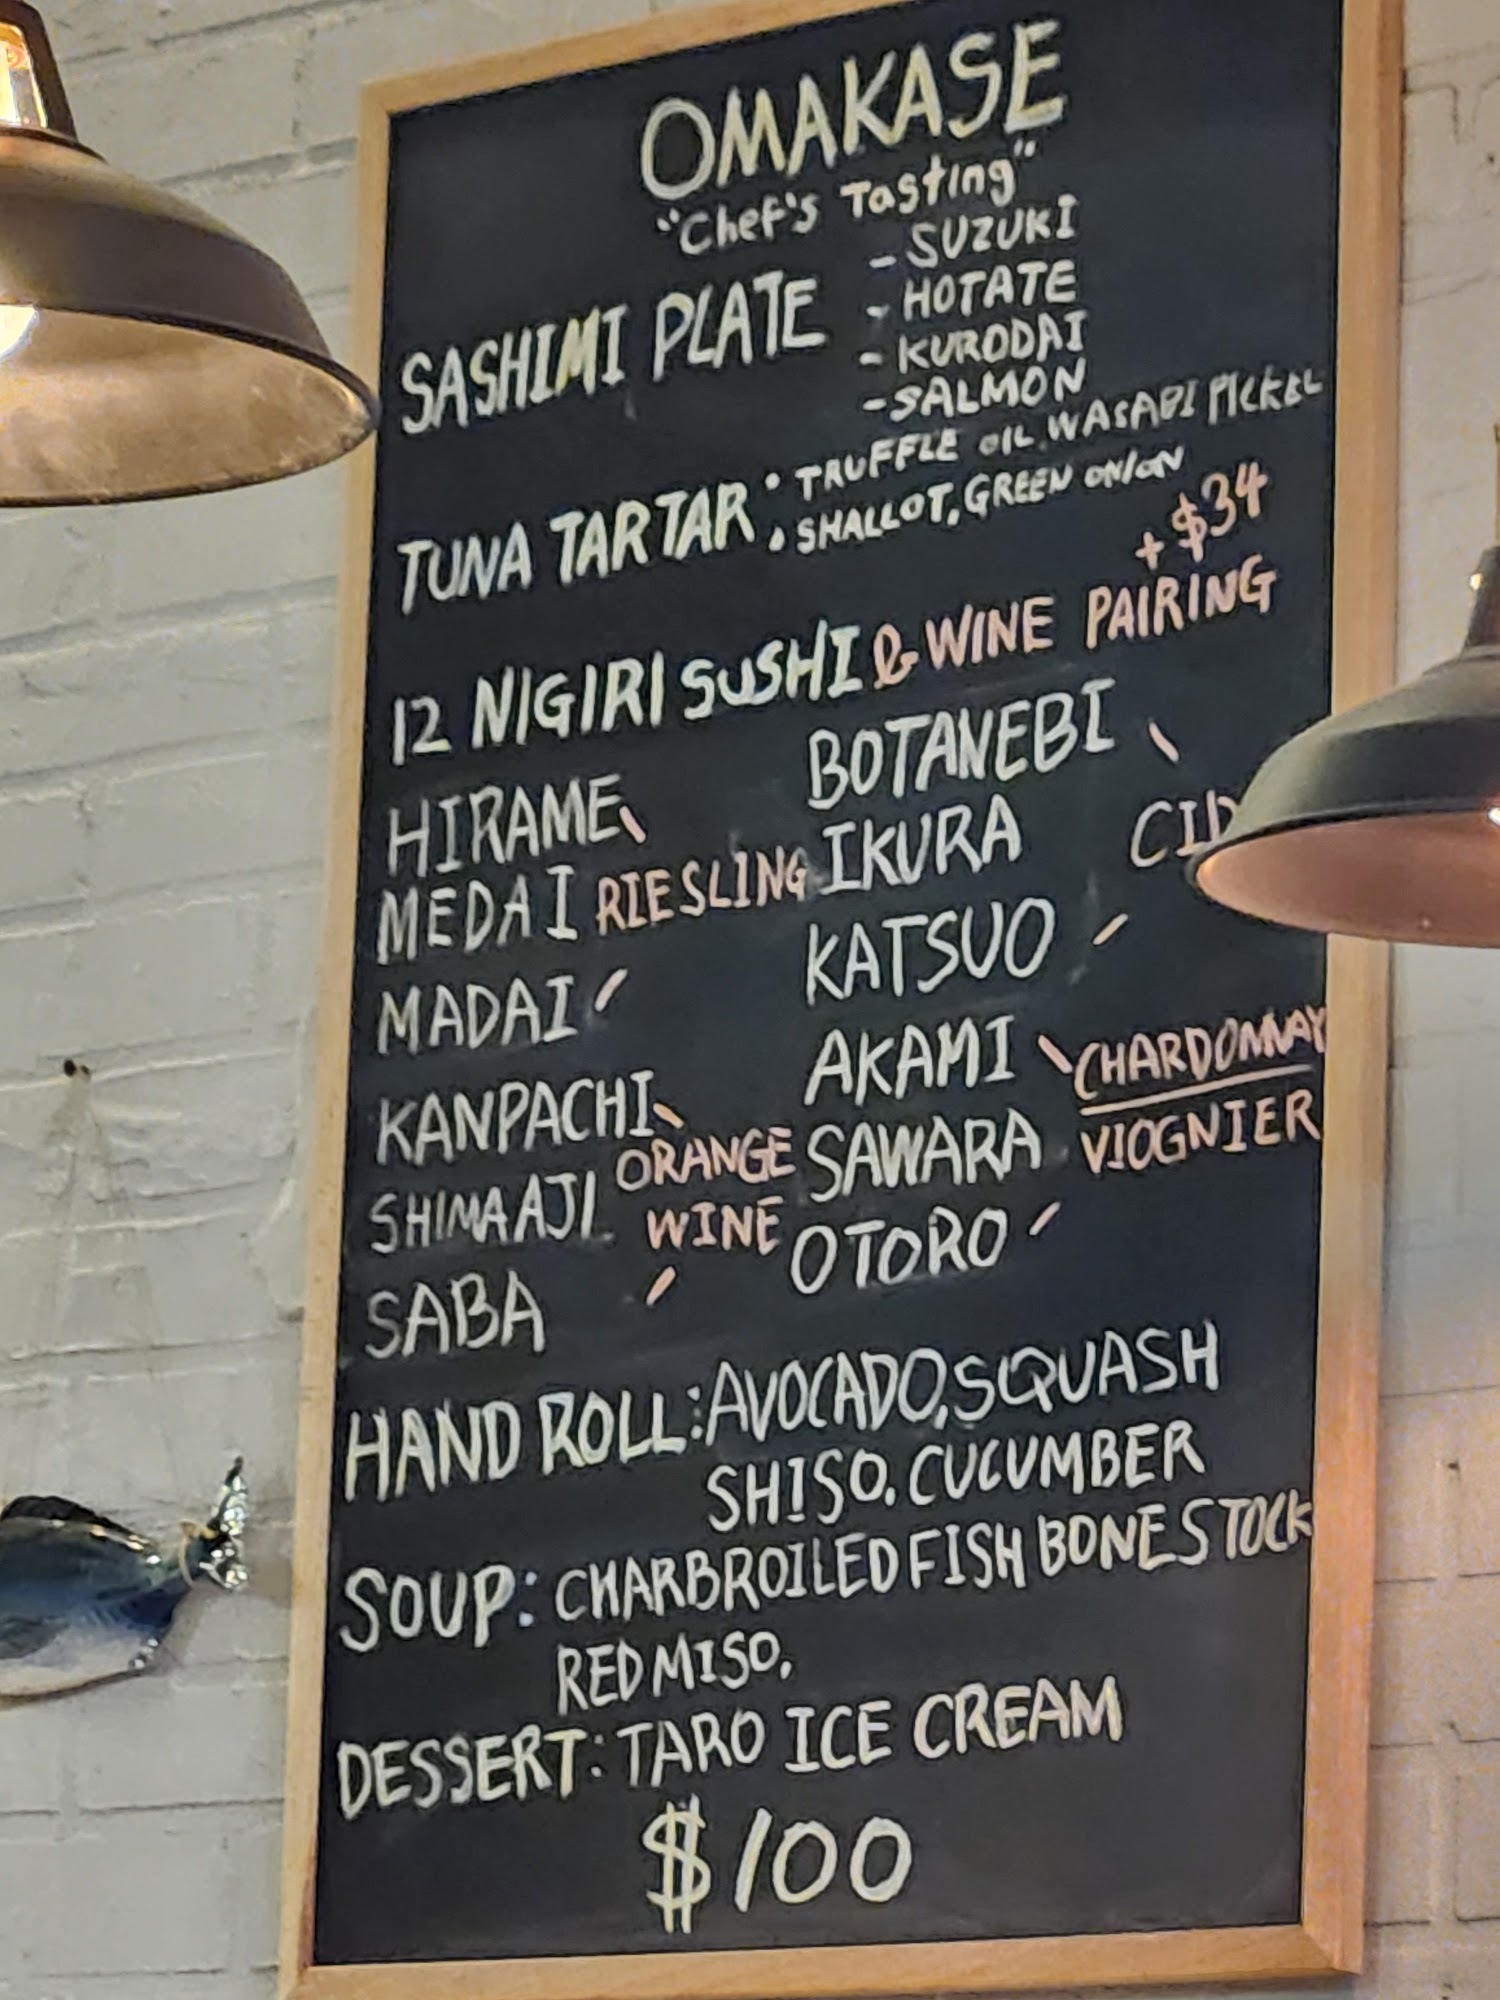 OMAKASE
"Chef's Tasting"
SASHIMI PLATE
- SUZUKI
- HOTATE
- KURODAI
- SALMON
TUNA TARTAR
• TRUFFLE OIL. WASABI PICKEL
• SHALLOT, GREEN ONION
+ $34
12 NIGIRI SUSHI & WINE PAIRING
HIRAME
MEDAI RIESLING
MADAI
KANPACHI
SHIMAAJI ORANGE WINE
SABA
BOTANEBI
IKURA
KATSUO
AKAMI CHARDONNAY
SAWARA VIOGNIER
OTORO
HAND ROLL: AVOCADO, SQUASH
SHISO, CUCUMBER
SOUP: CHARBROILED FISH BONE STOCK
RED MISO,
DESSERT: TARO ICE CREAM
$100